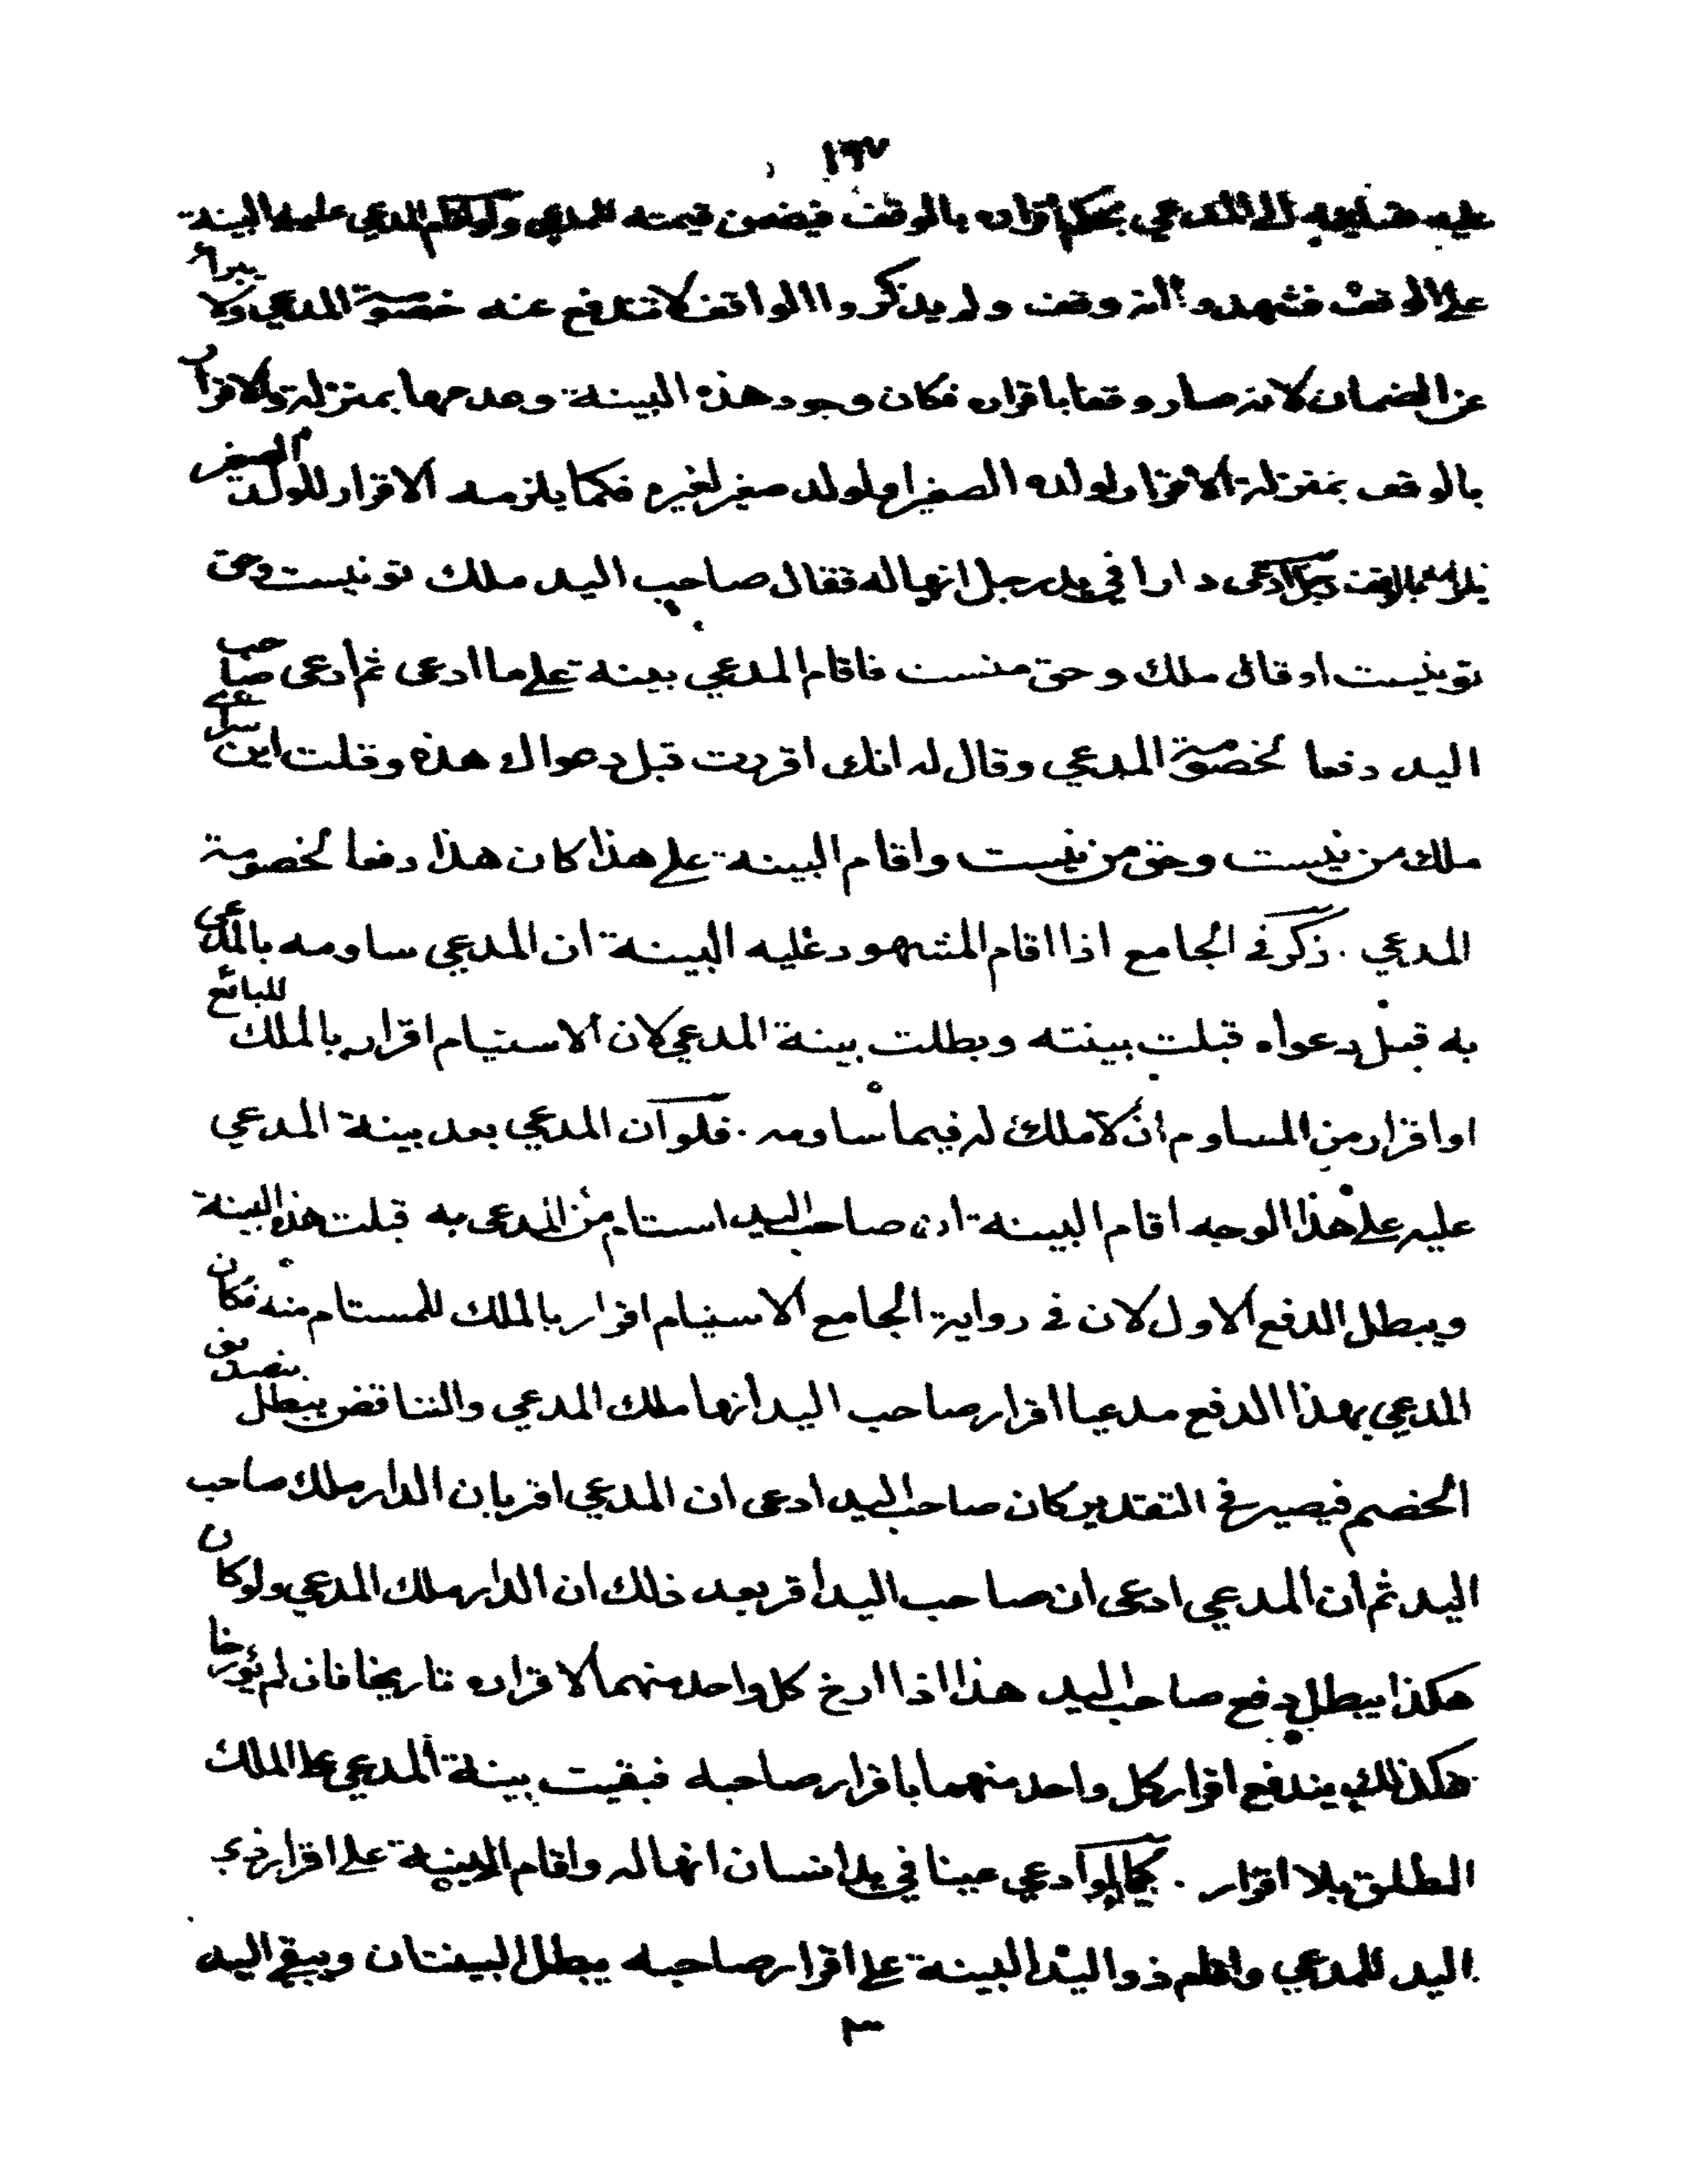 ١٦٧
عليه تسليمه الى المدعي بحكم اقراره بالوقف فيضمن قيمته للمدعي ولو اقام المدعي عليه البينة
على الوقف فشهدوا انه وقف ولم يذكروا الواقف لا تندفع عنه خصومة المدعي ولا يبرأ
عن الضمان لانه صار وقفا باقراره فكان وجود هذه البينة وعدمها بمنزلة والاقرار
بالوقف بمنزلة الاقرار لولده الصغير او لولد صغير لغيره فكما يلزمه الاقرار للولد الصغير
يلزمه بالوقف رجل ادعى دارا في يد رجل انها له فقال صاحب اليد ملك تو نيست وحق
تو نيست او قال ملك وحق منست فاقام المدعي بينة على ما ادعى ثم ادعى صاحب
اليد دفعا لخصومة المدعي وقال له انك اقررت قبل دعواك هذه وقلت اين سراى
ملك من نيست وحق من نيست واقام البينة على هذا كان هذا دفعا لخصومة
المدعي . ذكر في الجامع اذا اقام المشهود عليه البينة ان المدعي ساومه بالمدعى
به قبل دعواه قبلت بينته وبطلت بينة المدعي لان الاستيام اقرار بالملك للبائع
او اقرار من المساوم ان لا ملك له فيما ساومه . فلو ان المدعي بعد بينة المدعي
عليه على هذا الوجه اقام البينة ان صاحب اليد استام من المدعى به قبلت هذه البينة
ويبطل الدفع الاول لان في رواية الجامع الاستيام اقرار بالملك للمستام منه فكان
المدعي بهذا الدفع مدعيا اقرار صاحب اليد انها ملك المدعي والتناقض يبطل بتصديق
الخصم فيصير في التقدير كان صاحب اليد ادعى ان المدعي اقر بان الدار ملك صاحب
اليد ثم ان المدعي ادعى ان صاحب اليد اقر بعد ذلك ان الدار ملك المدعي ولو كان
هكذا يبطل دفع صاحب اليد هذا اذا ارخ كل واحد منهما لاقراره تاريخا فان لم يؤرخا
فكذلك يندفع اقرار كل واحد منهما باقرار صاحبه فبقيت بينة المدعي على الملك
المطلق بلا اقرار . كما لو ادعى عينا في يد انسان انها له واقام البينة على اقرار ذي
اليد للمدعي واقام ذو اليد البينة على اقرار صاحبه يبطل البينتان ويبقى اليد